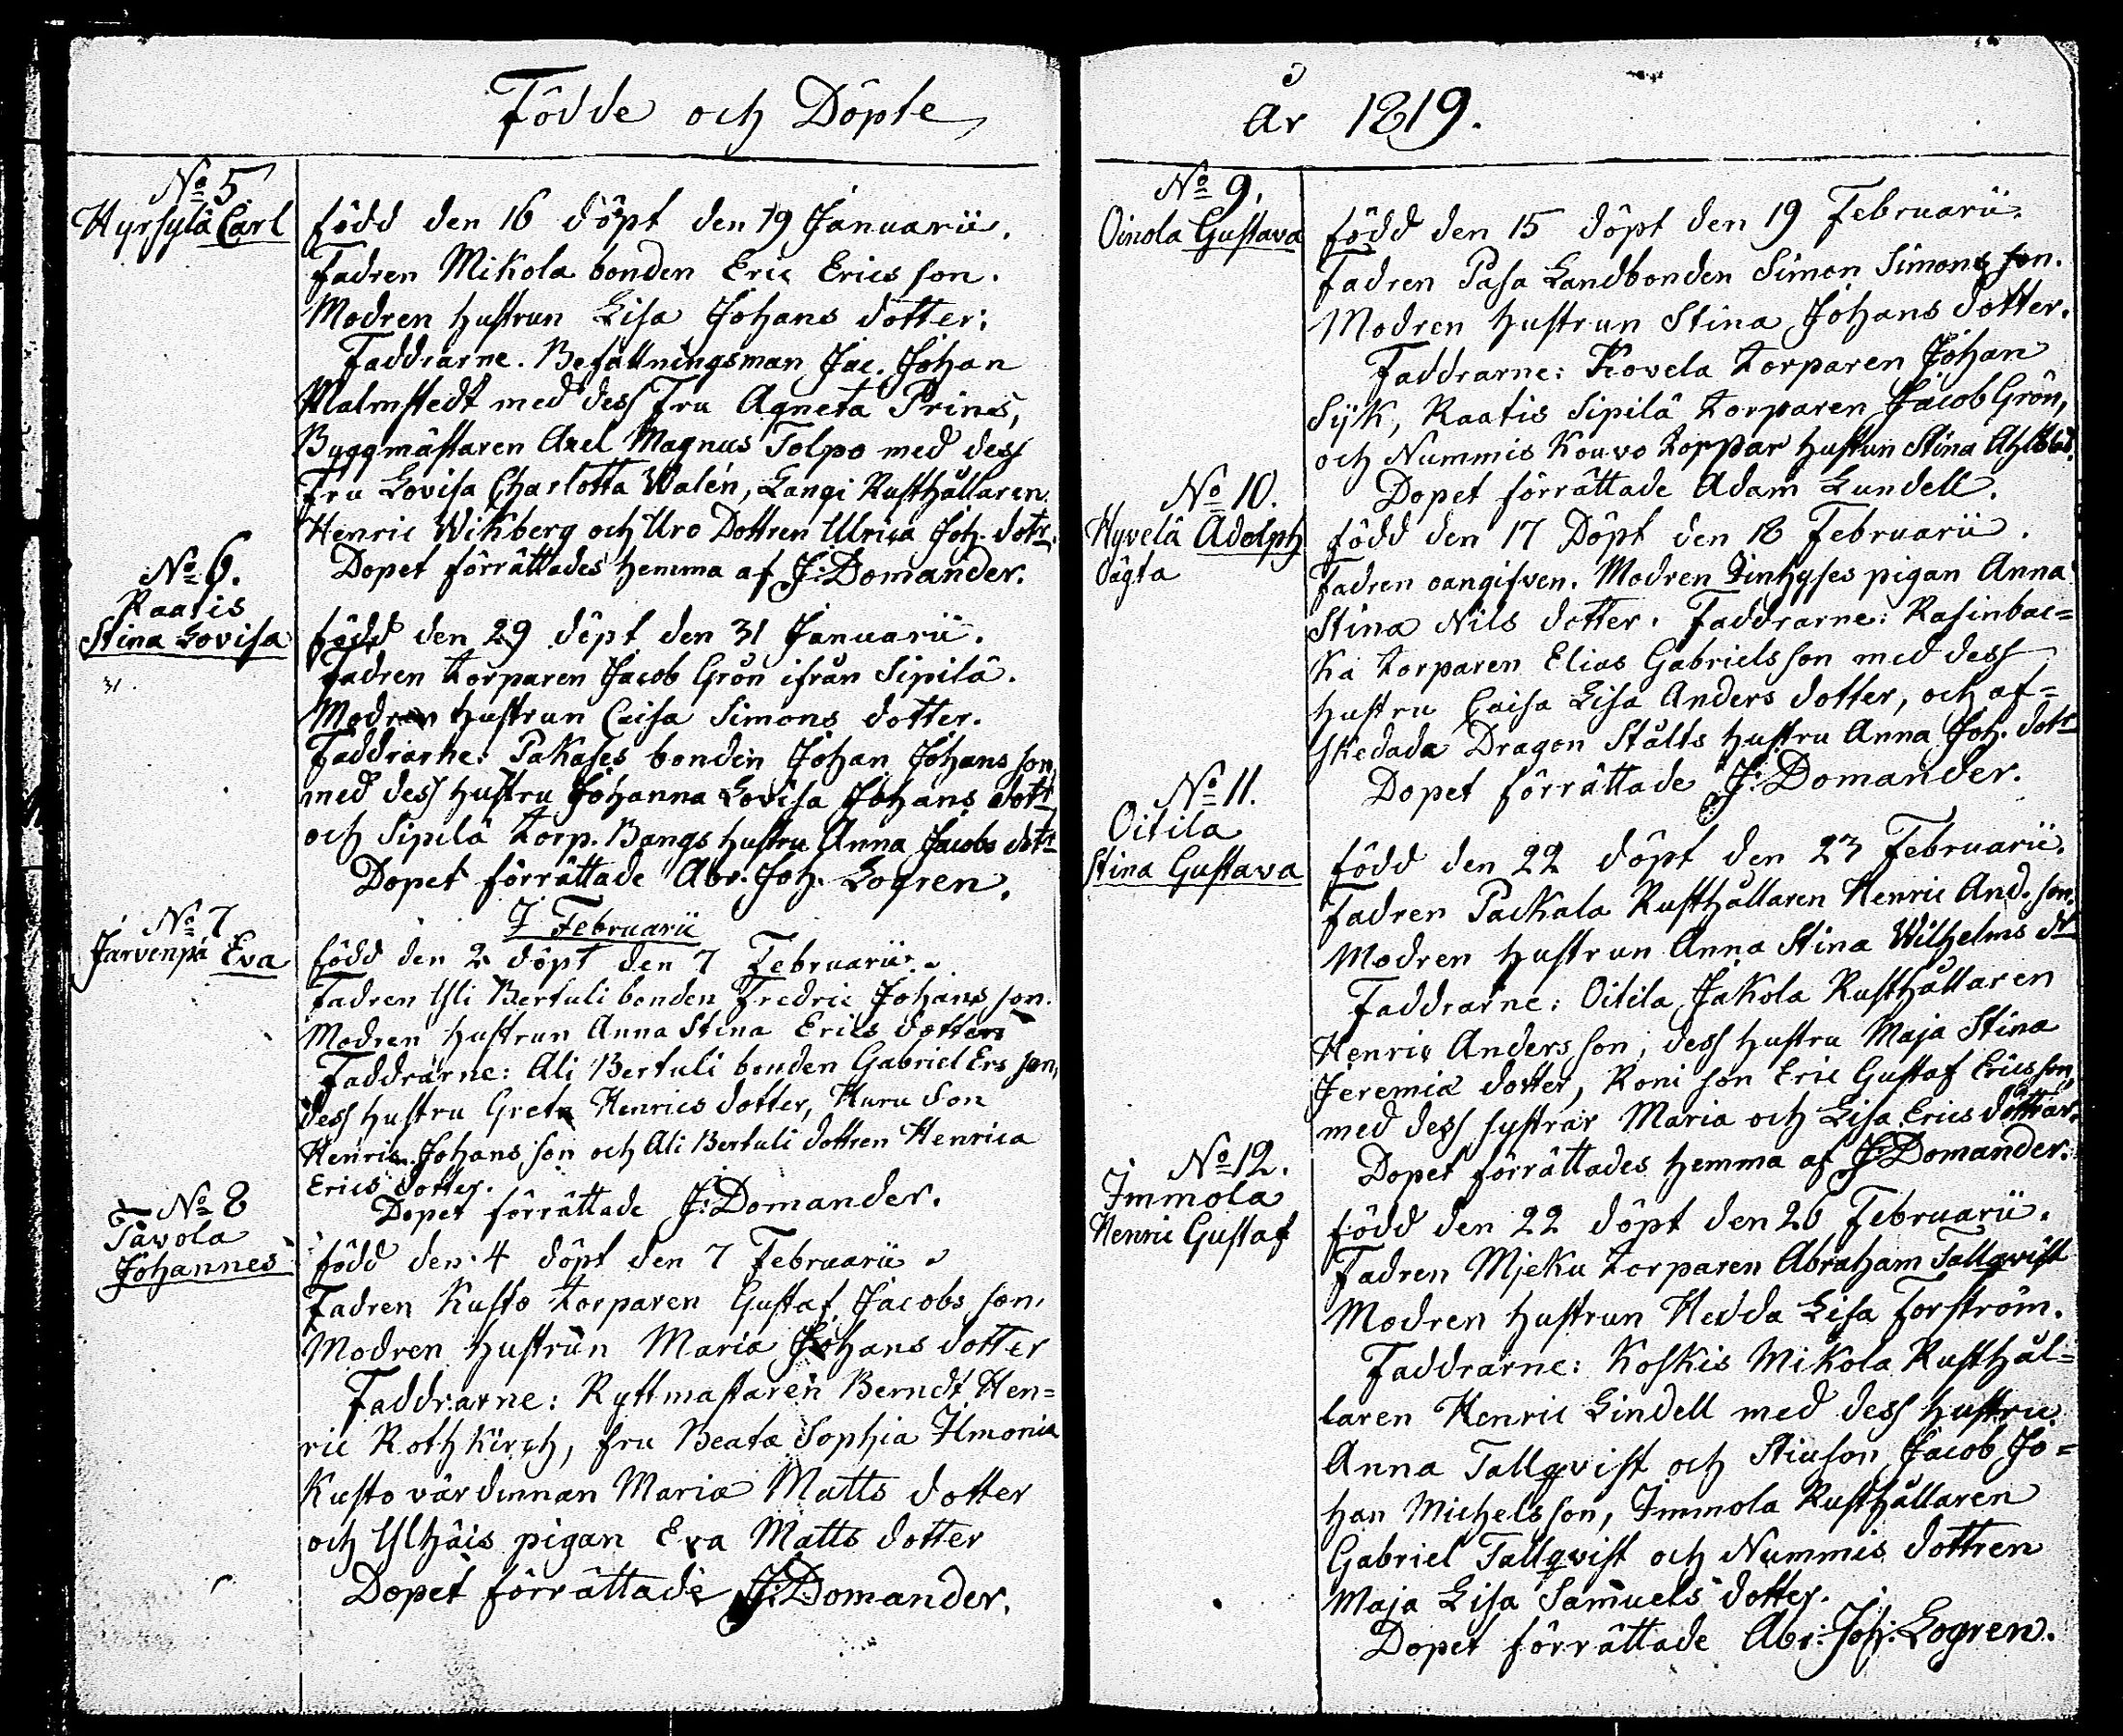 Födde och Döpte
No 5
Hyrsylä Carl
född den 16 döpt den 19 Januarii.
Fadren Mikola bonden Eric Ericsson.
Modren hustrun Lisa Johans dotter:
Faddrarne. Befallningsman Jac. Johan
Malmstedt med dess Fru Agneta Prines,
Byggmästaren Axel Magnus Tolpo med dess
Fru Lovisa Charlotta Walén, Langi Rusthållaren
Henric Wikberg och Uro Dottren Ulrica Joh. dotr.
Dopet förrättades hemma af J: Domander.
No 6.
Raatis
Stina Lovisa
31.
född den 29 döpt den 31 Januarii.
Fadren torparen Jacob Grön ifrån Sipilä.
Modren hustrun Caisa Simons dotter.
Faddrarne: Pakases bonden Johan Johansson
med dess hustru Johanna Lovisa Johans dotr
och Sipilä torp. Bangs hustru Anna Jacobs dotr
Dopet förrättade Abr. Joh. Logren.
I Februarii
No 7
Järvenpä Eva
född den 2 döpt den 7 Februarii.
Fadren Yli Bertuli bonden Fredric Johansson.
Modren hustrun Anna Stina Erics dotter
Faddrarne: Ali Bertuli bonden Gabriel Ersson,
dess hustru Greta Henrics dotter, Huru Son
Henric Johansson och Ali Bertuli dottren Henrica
Erics dotter.
Dopet förrättade J: Domander.
No 8
Tavola
Johannes
född den 4 döpt den 7 Februarii.
Fadren Kusto torparen Gustaf Jacobsson.
Modren hustrun Maria Johans dotter
Faddrarne: Ryttmästaren Berndt Hen=
ric Rothkirch, fru Beata Sophia Ilmonia
Kusto värdinnan Maria Matts dotter
och Ylhäis pigan Eva Matts dotter
Dopet förrättade J: Domander.
År 1819.
No 9.
Oinola Gustava
född den 15 döpt den 19 Februarii.
Fadren Pasa Landbonden Simon Simonsson.
Modren hustrun Stina Johans dotter.
Faddrarne: Kovela torparen Johan
Sijk, Raatis Sipilä torparen Jacob Grön,
och Nummis Kouvo torpar hustrun Stina Ahlblad.
Dopet förrättade Adam Lundell.
No 10.
Hyvelä Adolph
oägta
född den 17 Döpt den 18 Februarii.
Fadren oangifven. Modren Inhyses pigan Anna
Stina Nils dotter. Faddrarne: Rasinbac=
ka torparen Elias Gabrielsson med dess
hustru Caisa Lisa Anders dotter, och af=
skedada Dragon Stålts hustru Anna Joh. dotr
Dopet förrättade J: Domander.
No 11.
Oitila
Stina Gustava
född den 22 döpt den 23 Februarii.
Fadren Packala Rusthållaren Henric And.son.
Modren hustrun Anna Stina Wilhelms dr
Faddrarne: Oitila Jakola Rusthållaren
Henric Andersson, dess hustru Maja Stina
Jeremia dotter, Roni son Eric Gustaf Ericsson
med dess systrar Maria och Lisa Erics döttrar.
Dopet förrättades hemma af J: Domander.
No 12.
Immola
Henric Gustaf
född den 22 döpt den 26 Februarii.
Fadren Mjeku torparen Abraham Tallqvist
Modren hustrun Hedda Lisa Forström.
Faddrarne: Koskis Mikola Rusthål=
laren Henric Lindell med dess hustru
Anna Tallqvist och Stiuson Jacob Jo=
han Michelsson, Immola Rusthållaren
Gabriel Tallqvist och Nummis dottren
Maja Lisa Samuels dotter.
Dopet förrättade Abr: Joh: Logren.